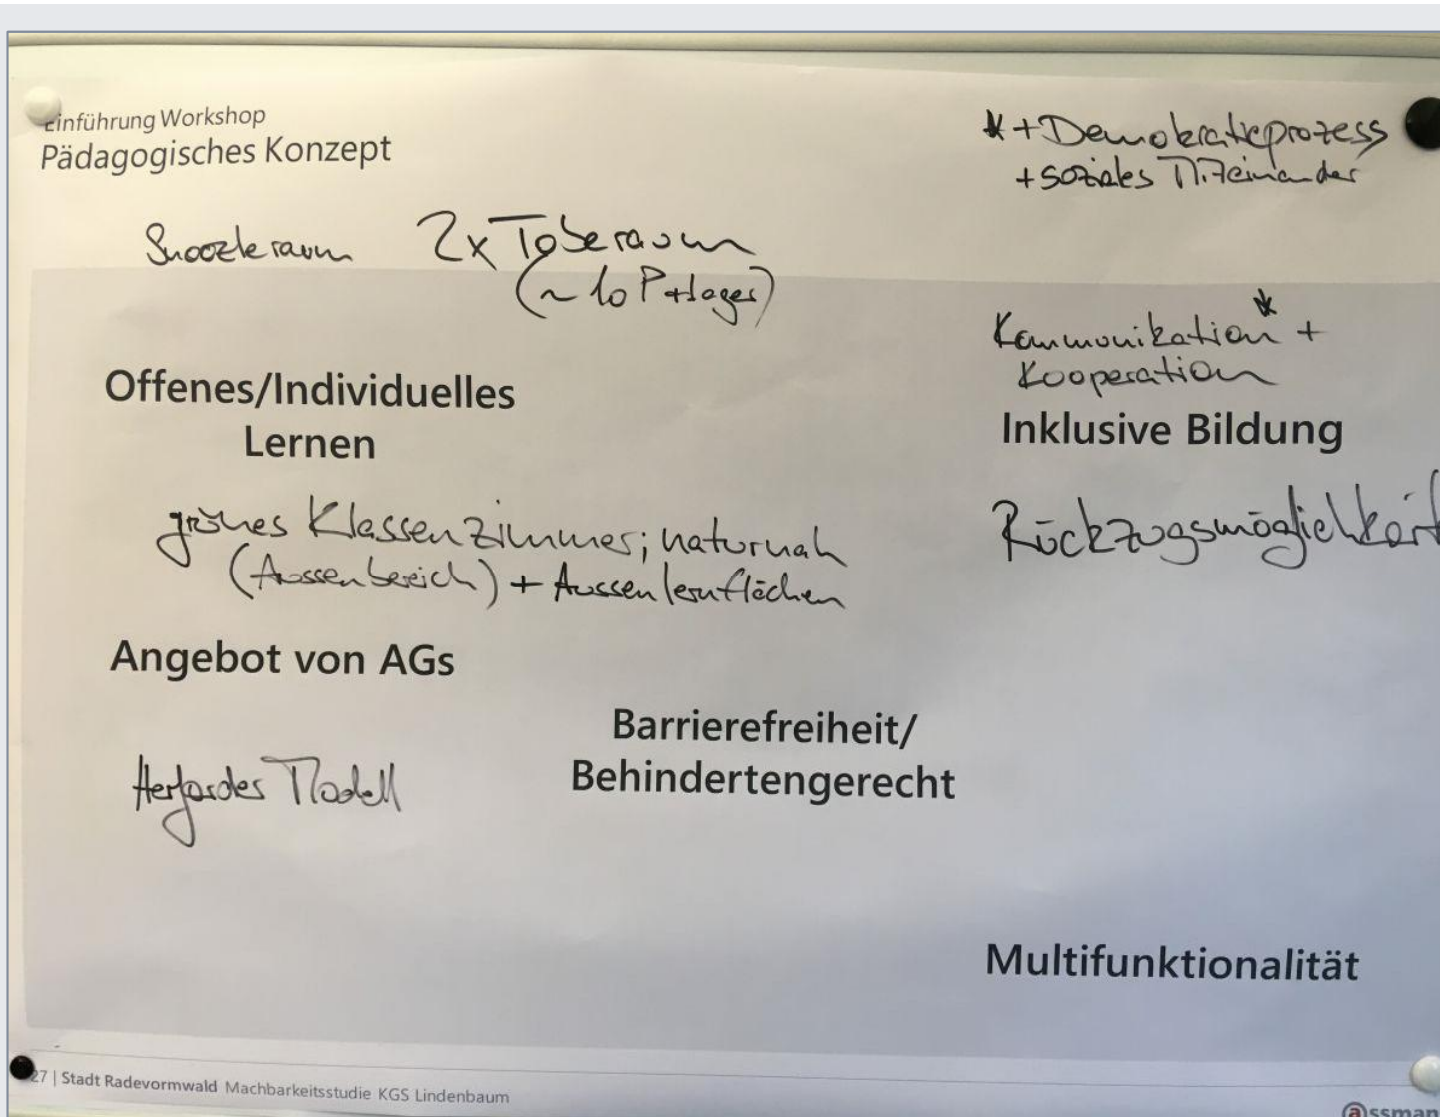 Einführung Workshop
Pädagogisches Konzept
* + Demokratieprozess
+ soziales Miteinander
Snoozleraum 2x Toberaum
(~ 10 P + lager)
Kommunikation * +
Kooperation
Offenes/Individuelles
Lernen
Inklusive Bildung
grünes Klassenzimmer; naturnah
(Aussenbereich) + Aussenlernflächen
Rückzugsmöglichkeit
Angebot von AGs
Barrierefreiheit/
Behindertengerecht
Herforder Modell
Multifunktionalität
27 | Stadt Radevormwald Machbarkeitsstudie KGS Lindenbaum
assman